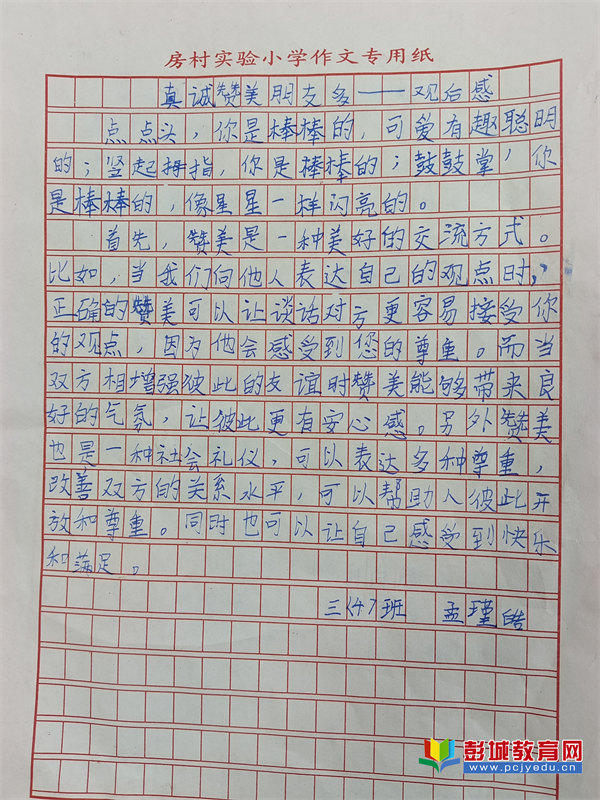 房村实验小学作文专用纸
真诚赞美朋友多——观后感
点点头，你是棒棒的，可爱有趣聪明
的；竖起拇指，你是棒棒的；鼓鼓掌，你
是棒棒的，像星星一样闪亮的。
首先，赞美是一种美好的交流方式。
比如，当我们向他人表达自己的观点时，
正确的赞美可以让谈话对方更容易接受你
的观点，因为他会感受到您的尊重。而当
双方相增强彼此的友谊时赞美能够带来良
好的气氛，让彼此更有安心感。另外赞美
也是一种社会礼仪，可以表达多种尊重，
改善双方的关系水平，可以帮助人彼此开
放和尊重。同时也可以让自己感受到快乐
和满足。
三（4）班 孟瑾皓
彭城教育网
www.pcjyedu.cn